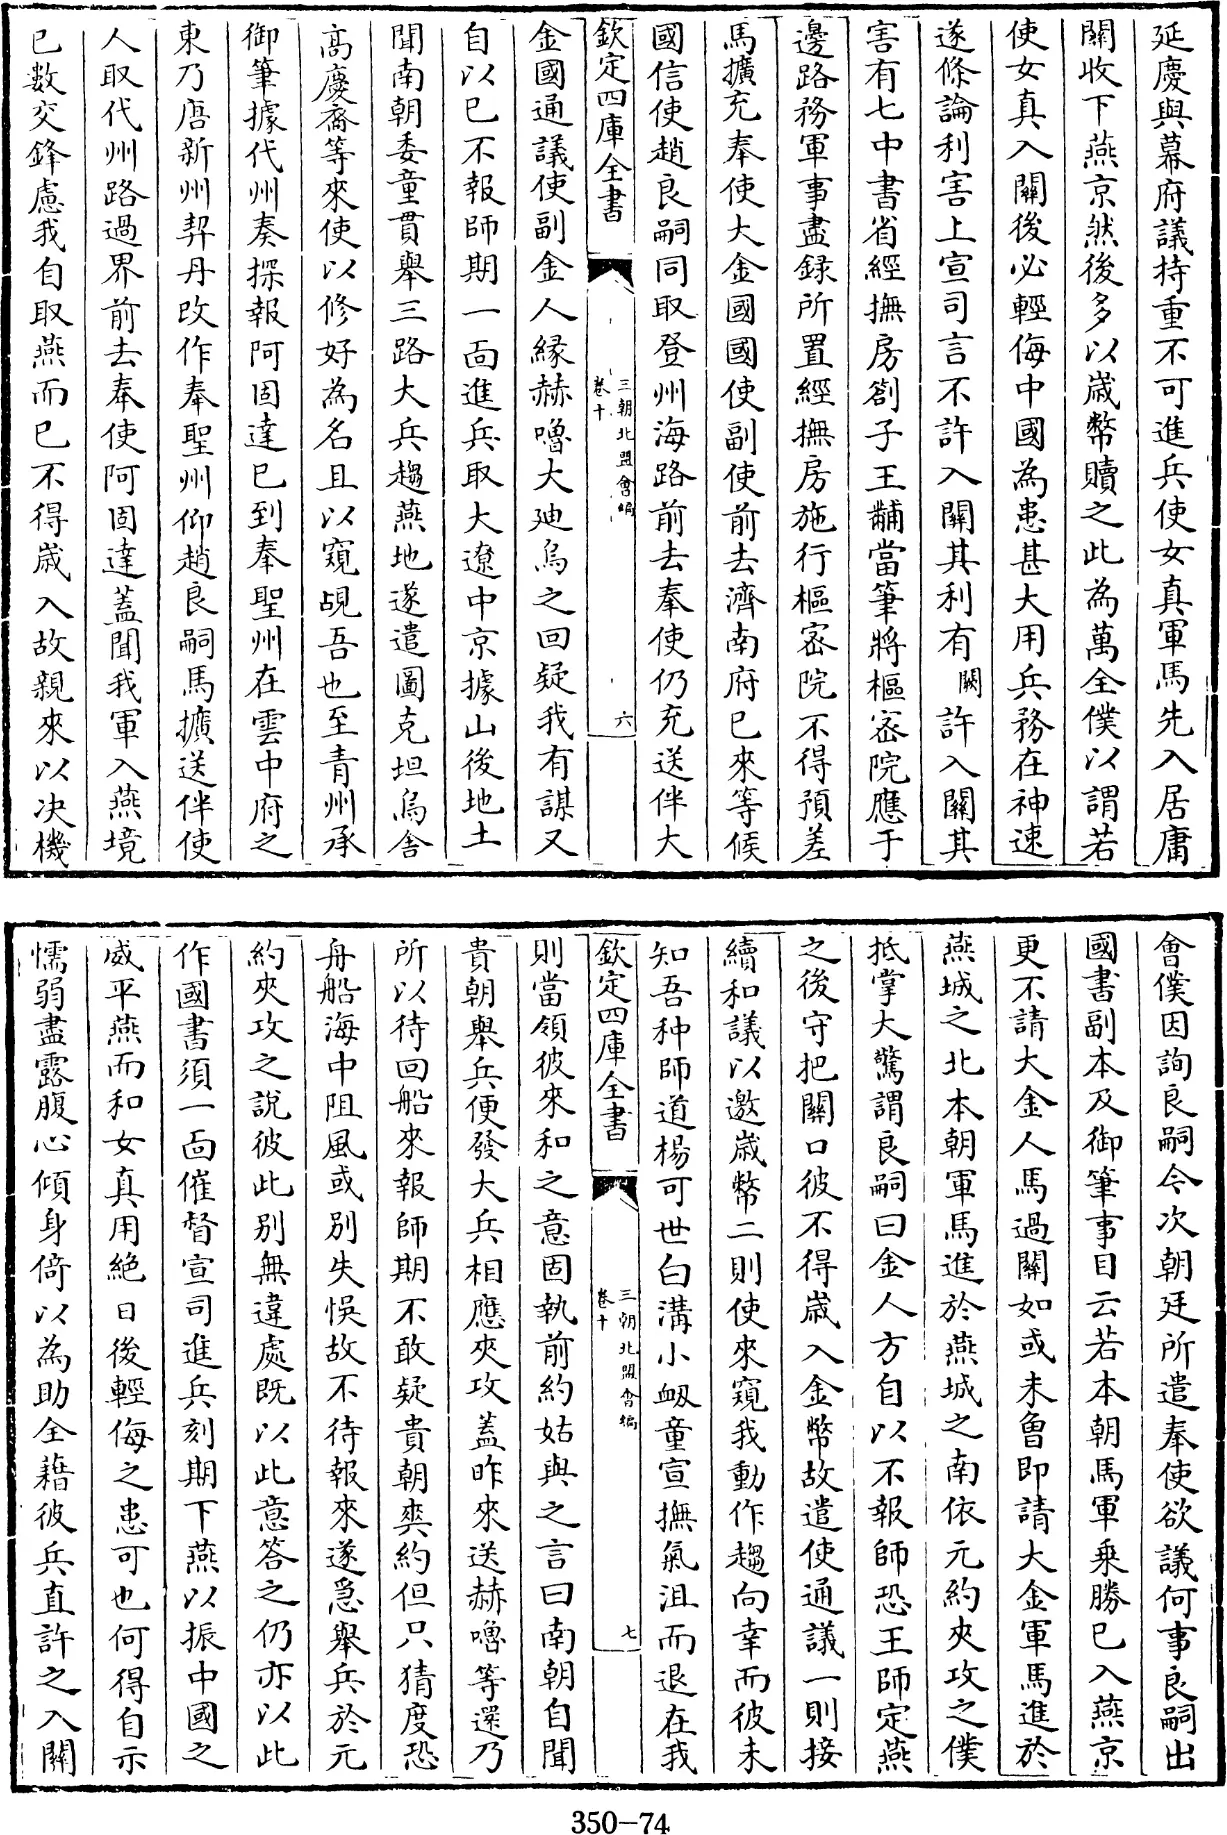 延慶與幕府議持重不可進兵使女真軍馬先入居庸
關收下燕京然後多以嵗幣贖之此為萬全僕以謂若
使女真入關後必輕侮中國為患甚大用兵務在神速
遂條論利害上宣司言不許入關其利有闕許入關其
害有七中書省經撫房劄子王黼當筆將樞宻院應于
邊路務軍事盡録所置經撫房施行樞宻院不得預差
馬擴充奉使大金國國使副使前去濟南府已來等候
國信使趙良嗣同取登州海路前去奉使仍充送伴大
欽定四庫全書
三朝北盟會編
卷十
六
金國通議使副金人縁赫嚕大廸烏之回疑我有謀又
自以已不報師期一靣進兵取大遼中京據山後地土
聞南朝委童貫舉三路大兵趨燕地遂遣圖克坦烏舎
高慶裔等來使以修好為名且以窺覘吾也至青州承
御筆據代州奏探報阿固達已到奉聖州在雲中府之
東乃唐新州契丹改作奉聖州仰趙良嗣馬擴送伴使
人取代州路過界前去奉使阿固達蓋聞我軍入燕境
已數交鋒慮我自取燕而已不得嵗入故親來以决機
會僕因詢良嗣今次朝廷所遣奉使欲議何事良嗣出
國書副本及御筆事目云若本朝馬軍乗勝已入燕京
更不請大金人馬過關如或未魯即請大金軍馬進於
燕城之北本朝軍馬進於燕城之南依元約夾攻之僕
抵掌大驚謂良嗣曰金人方自以不報師恐王師定燕
之後守把關口彼不得嵗入金幣故遣使通議一則接
續和議以邀嵗幣二則使來窺我動作趨向幸而彼未
知吾种師道楊可世白溝小衂童宣撫氣沮而退在我
欽定四庫全書
三朝北盟會編
卷十
七
則當領彼來和之意固執前約姑與之言曰南朝自聞
貴朝舉兵便發大兵相應夾攻蓋昨來送赫嚕等還乃
所以待回船來報師期不敢疑貴朝爽約但只猜度恐
舟船海中阻風或别失悞故不待報來遂急舉兵於元
約夾攻之說彼此别無違處既以此意答之仍亦以此
作國書須一靣催督宣司進兵刻期下燕以振中國之
威平燕而和女真用絶日後輕侮之患可也何得自示
懦弱盡露腹心傾身倚以為助全藉彼兵直許之入關
350-74